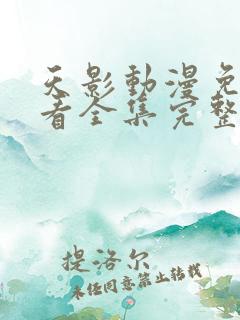 天影動漫免
看全集完整
提洛尔
未任同意禁止转载